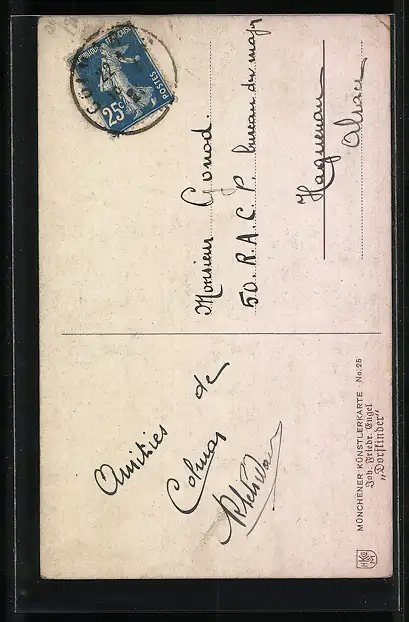 Amitiés de
Colmar
Monsieur Gonod.
50. R.A.C.P. bureau du major
Haguenau
Alsace
RÉPUBLIQUE FRANÇAISE
25c
POSTES
MÜNCHENER KÜNSTLERKARTE · No. 25
Joh. Friedr. Engel
„Dorfkinder"